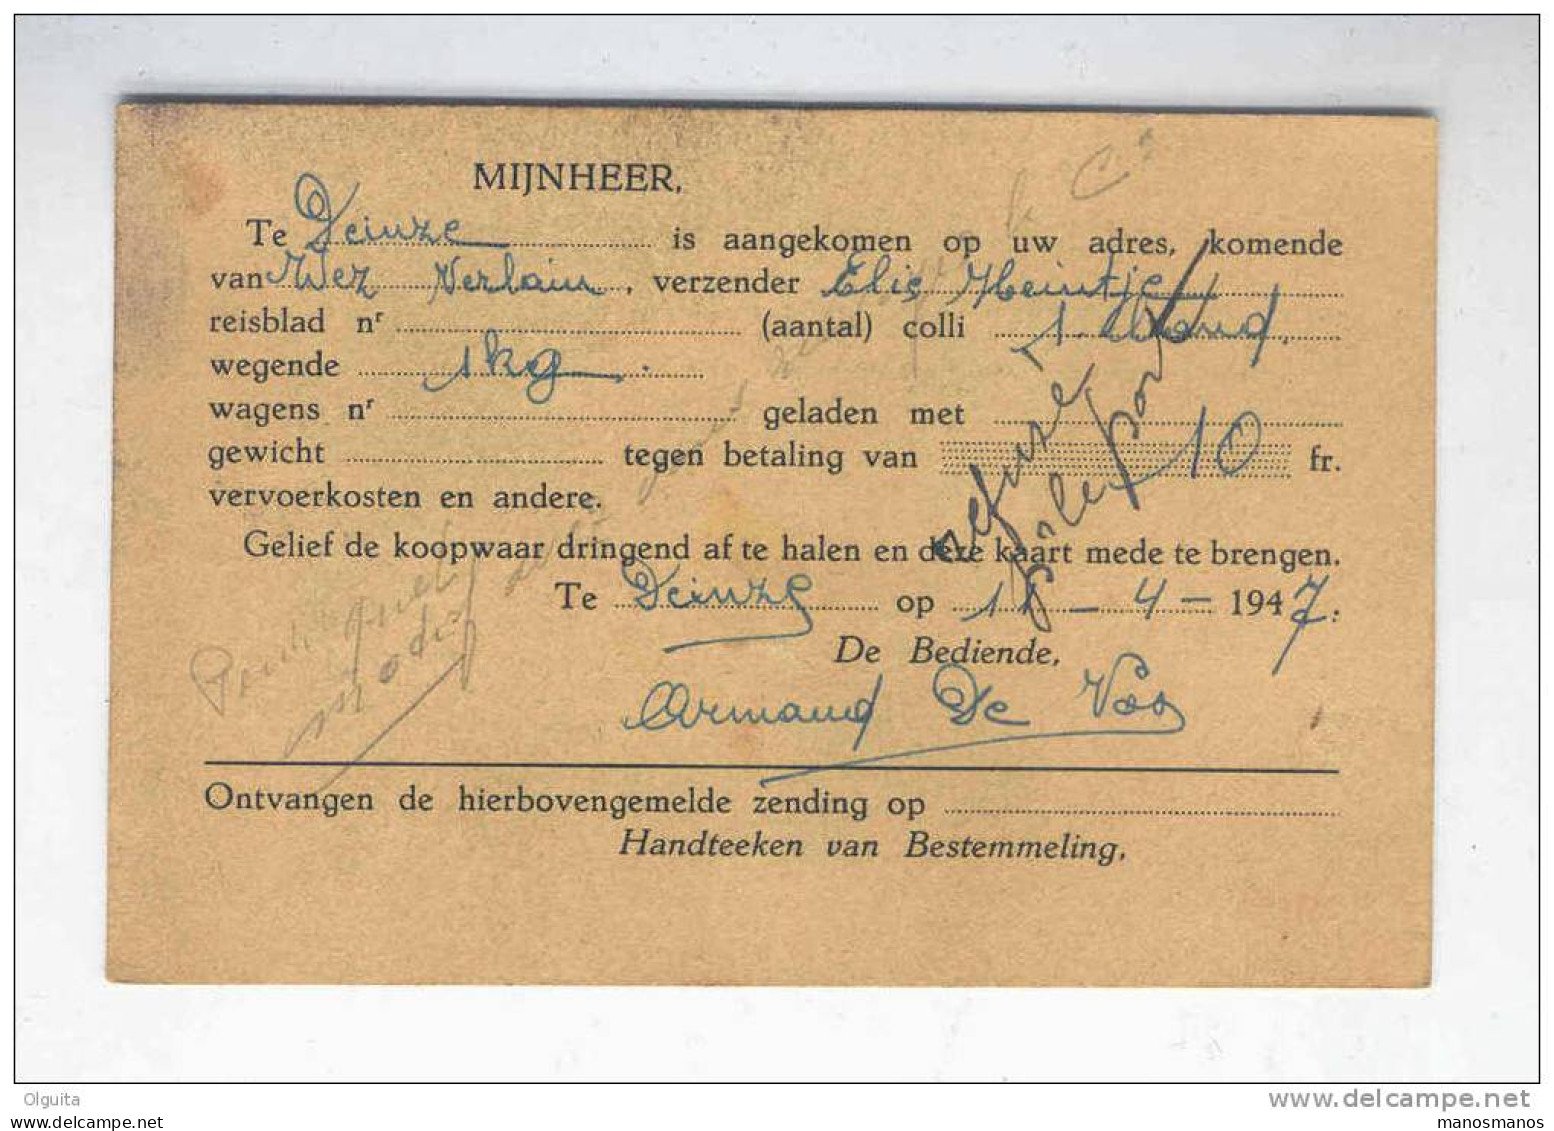 MIJNHEER,
Te Deinze is aangekomen op uw adres, komende
van Wez Verlain, verzender Elie Heintje
reisblad nr (aantal) colli 1
wegende 1 kg.
wagens nr geladen met
gewicht tegen betaling van 10 fr.
vervoerkosten en andere.
Gelief de koopwaar dringend af te halen en deze kaart mede te brengen.
Te Deinze op 11-4-1947.
De Bediende,
Armand De Vos
refusé
Ontvangen de hierbovengemelde zending op
Handteeken van Bestemmeling,
Olguita
www.delcampe.net
manosmanos